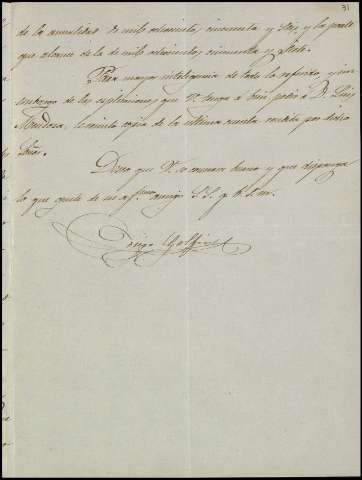 31
de la anualidad de mil ochocientos, cincuenta y Seis y la parte
que alcance de la de mil ochocientos cincuenta y Siete.
Para mayor inteligencia de todo lo referido, y sin
embargo de las esplicaciones que V. tenga á bien pedir á D. Luis
Mendoza, le remito copia de la ultima cuenta rendida por dicho
Señor.
Deseo que V. se conserve bueno y que disponga
lo que guste de su af.mo amigo S.S. q. b. s. m.
Diego